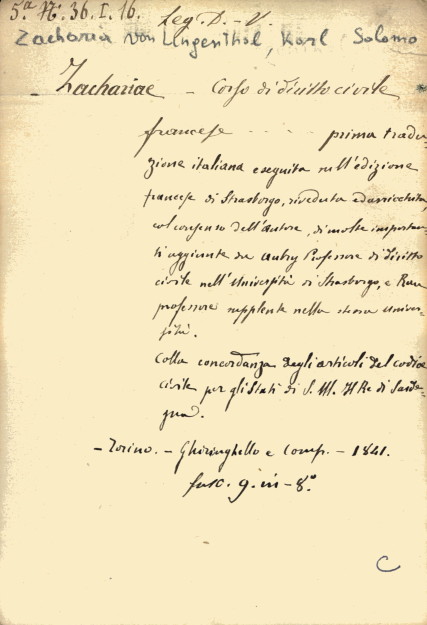 5.ª N. 36. I. 16. Leg. D. - V.
Zacharia von Lingenthal, Karl Salomo
- Zachariae - Corso di diritto civile
francese - - - - - prima tradu-
zione italiana eseguita sull'edizione
francese di Strasborgo, riveduta ed arricchita,
col consenso dell'Autore, di molte importan-
ti aggiunte da Aubry Professore di Diritto
civile nell'Università di Strasborgo, e Rau
professore supplente nella stessa Univer-
sità.
Colla concordanza degli articoli del codice
civile per gli Stati di S. M. il Re di Sarde-
gna.
- Torino. - Ghiringhello e Comp. - 1841.
fasc. 9. in - 8.º
C